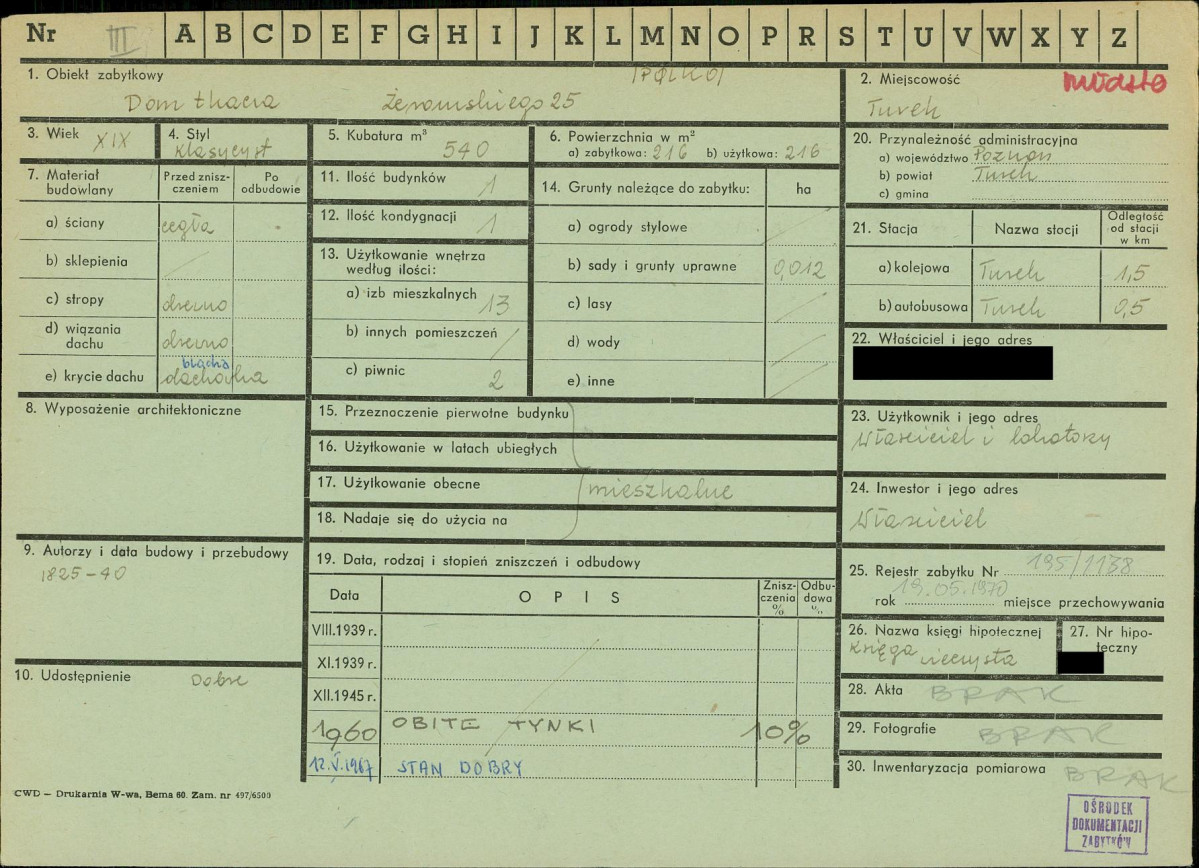 Nr III A B C D E F G H I J K L M N O P R S T U V W X Y Z
1. Obiekt zabytkowy
Dom tkacza Żeromskiego 25
2. Miejscowość miasto
Turek
3. Wiek XIX
4. Styl
klasycyst
5. Kubatura m³
540
6. Powierzchnia w m²
a) zabytkowa: 216 b) użytkowa: 216
7. Materiał budowlany
Przed zniszczeniem
Po odbudowie
a) ściany cegła
b) sklepienia
c) stropy drewno
d) wiązania dachu drewno
blacha
e) krycie dachu dachówka
8. Wyposażenie architektoniczne
9. Autorzy i data budowy i przebudowy
1825-40
10. Udostępnienie Dobre
11. Ilość budynków 1
12. Ilość kondygnacji 1
13. Użytkowanie wnętrza
według ilości:
a) izb mieszkalnych 13
b) innych pomieszczeń
c) piwnic 2
14. Grunty należące do zabytku: ha
a) ogrody stylowe
b) sady i grunty uprawne 0,012
c) lasy
d) wody
e) inne
15. Przeznaczenie pierwotne budynku
16. Użytkowanie w latach ubiegłych
17. Użytkowanie obecne mieszkalne
18. Nadaje się do użycia na
19. Data, rodzaj i stopień zniszczeń i odbudowy
Data
OPIS
Zniszczenia %
Odbudowa %
VIII.1939 r.
XI.1939 r.
XII.1945 r.
1960 OBITE TYNKI 10%
12.V.1967 STAN DOBRY
20. Przynależność administracyjna
a) województwo Poznań
b) powiat Turek
c) gmina
21. Stacja
Nazwa stacji
Odległość od stacji w km
a) kolejowa Turek 1,5
b) autobusowa Turek 0,5
22. Właściciel i jego adres
23. Użytkownik i jego adres
Właściciel i lokatorzy
24. Inwestor i jego adres
Właściciel
25. Rejestr zabytku Nr 195/1138
19.05.1970
rok miejsce przechowywania
26. Nazwa księgi hipotecznej
księga wieczysta
27. Nr hipoteczny
28. Akta BRAK
29. Fotografie BRAK
30. Inwentaryzacja pomiarowa BRAK
CWD – Drukarnia W-wa, Bema 60. Zam. nr 497/6500
OŚRODEK
DOKUMENTACJI
ZABYTKÓW